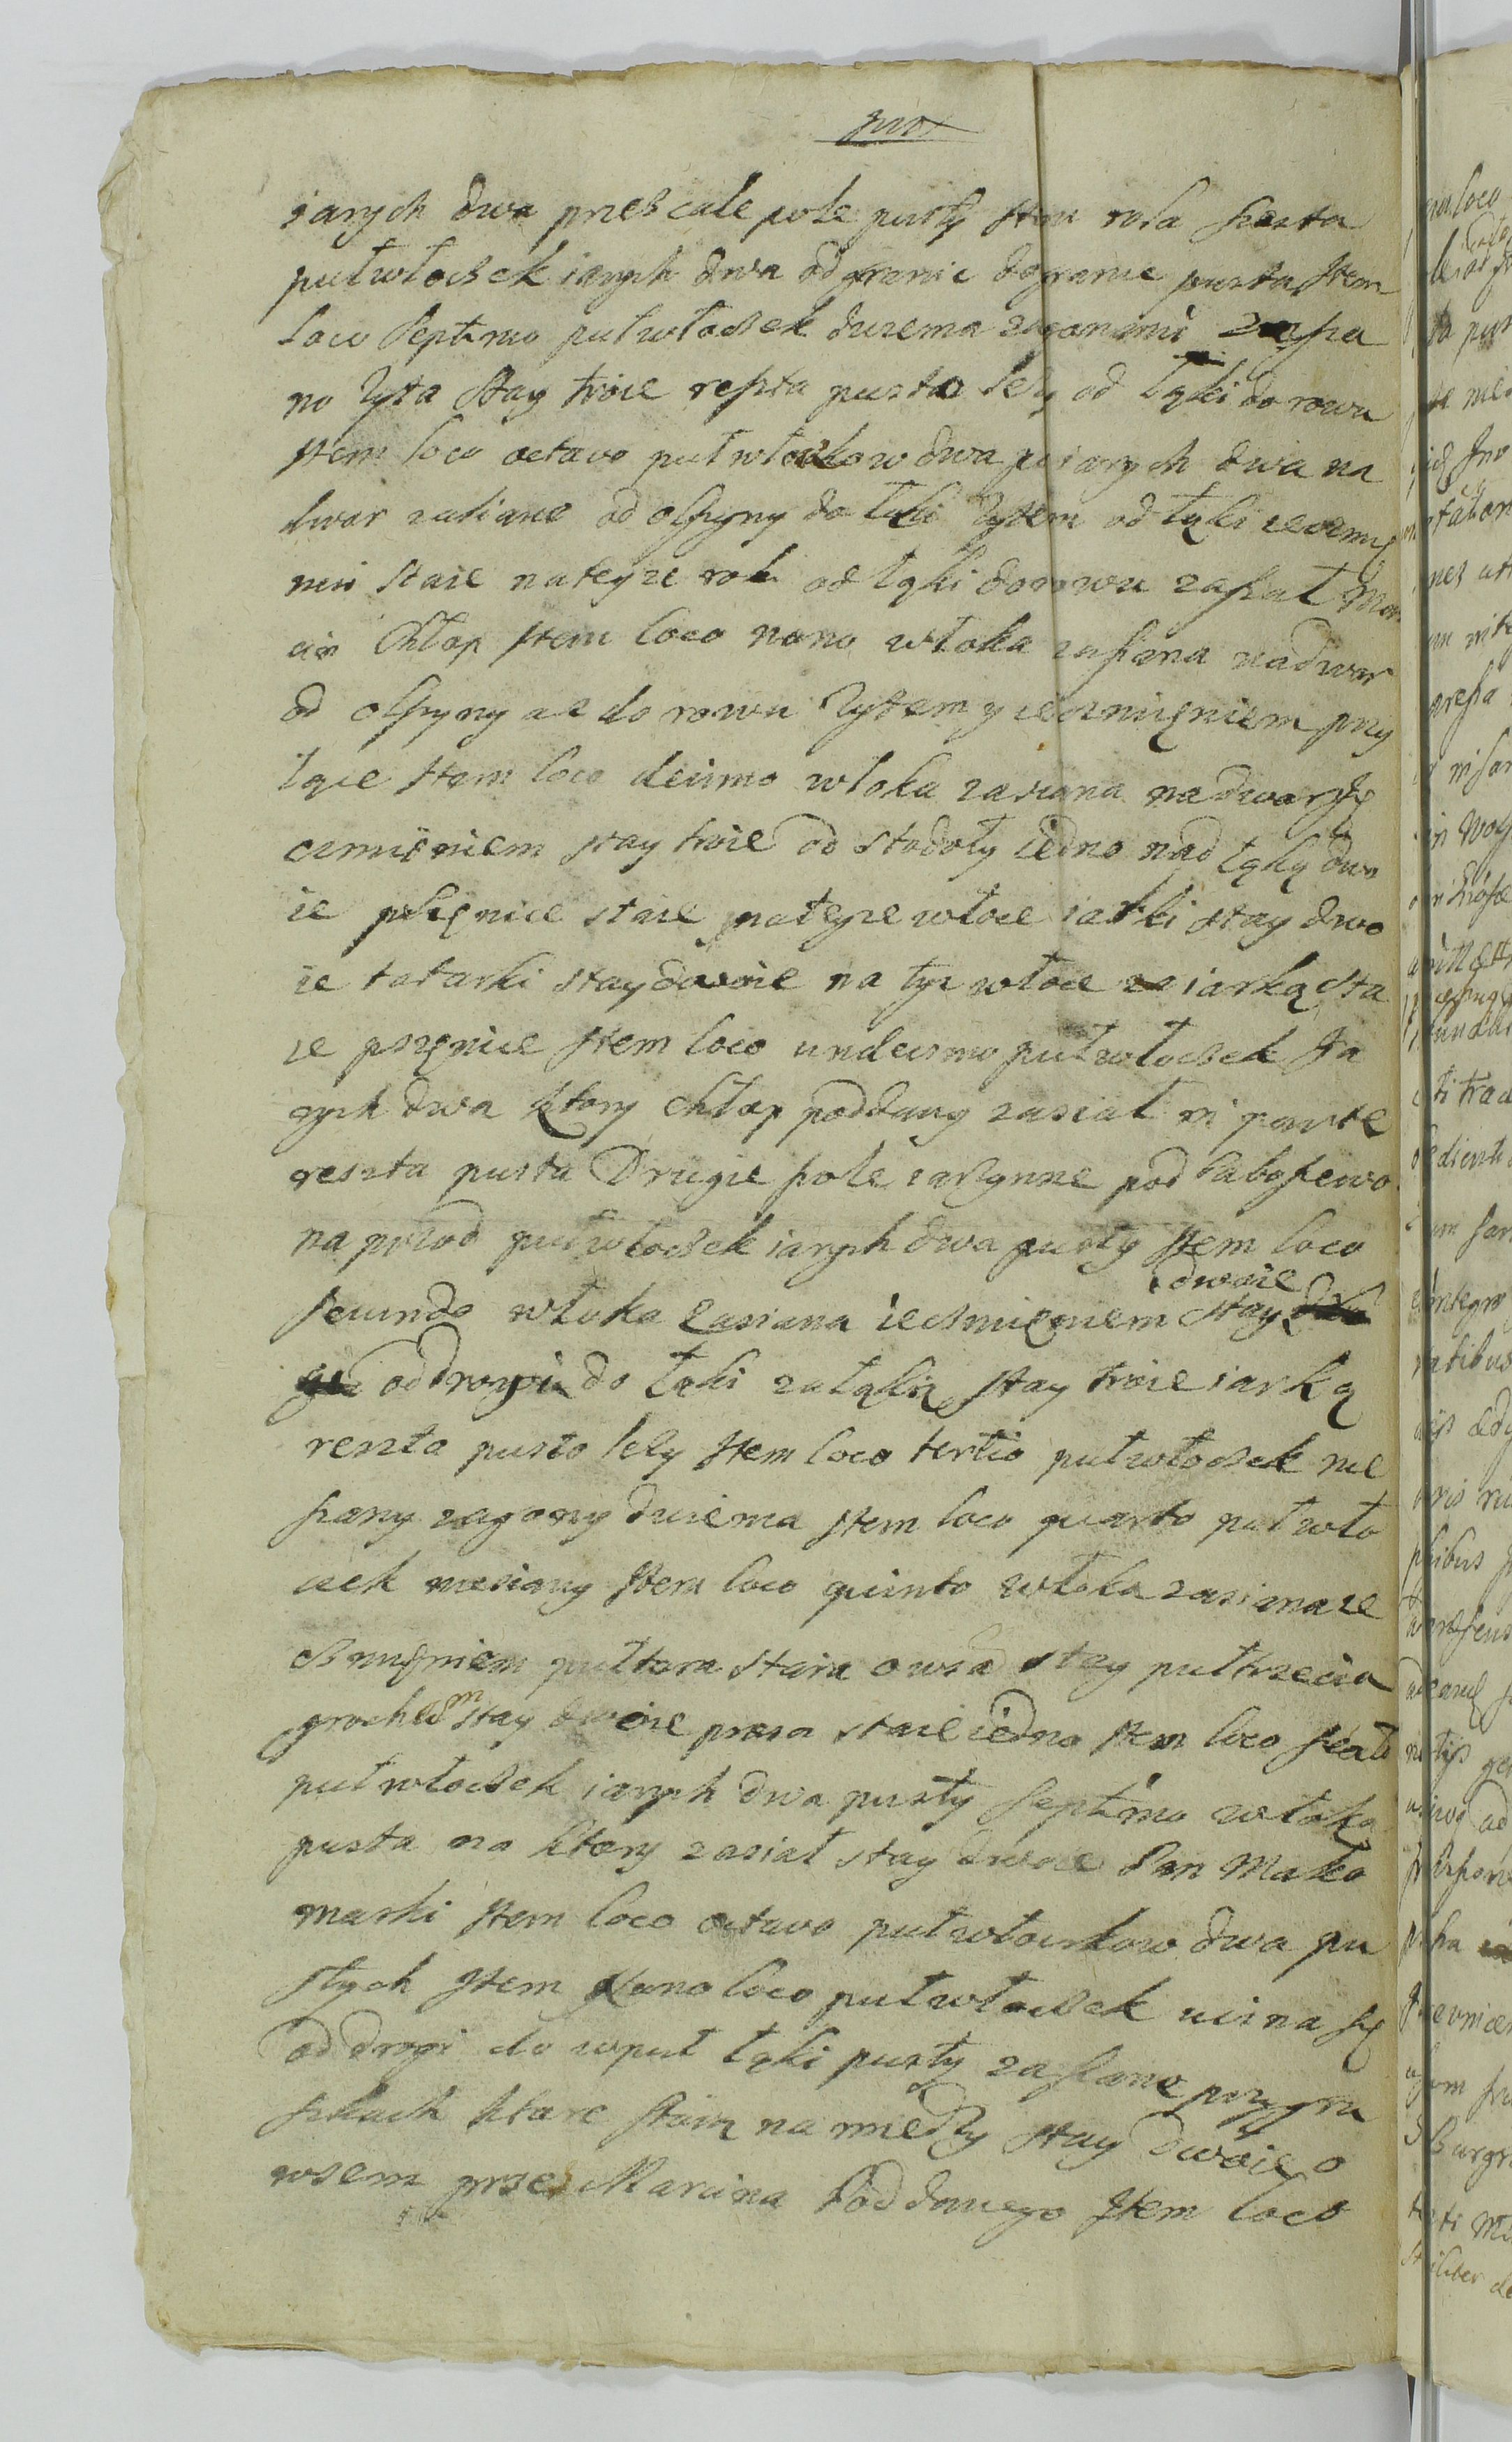 iarych dwa przes cale pole pusty Item rola szosta
pułwłoczek iarych dwa od granic do granic pusta Item
loco Septimo pułwłoczek dwiema zagonami zasia
no żyta stay troie reszta pusta leży od łąki do rowu
Item loco octavo pułwłoczkow dwa po iarych dwa na
dwor zasiane od olszyny do łąki żytem od łąki ieczmię
niu staie na teyze roli od łąki do rowu zasiał Mar
cin Chłop Item loco nono włoka zasiana na dwor
od olszyny az do rowu żytem y ieczmięniem przy
łące Item loco decimo włoka zasiana na dwor Ię
czmięniem stay troie od stodoły iedno nad łąką dwo
ie pszęnice staie na teyze włoce iarki stay dwo
ie tatarki stay dwoie na tyz włoce za iarką sta
ie pszęnice Item loco undecimo pułwłoczek Ia
rych dwa ktory chłop poddany zasiał in parte
reszta pusta Drugie pole iarzynne pod
na przod pułwłoczek iarych dwa pusty Item loco
secundo włoka zasiana ieczmięniem stay dwoie
od drogi do łąki za łąką stay troie iarką
reszta pusto leży Item loco tertio pułwłoczek nie
siany zagony dwiema Item loco quarto pułwło
czek niesiany Item loco quinto włoka zasiana ie
czmięniem pułtora staia owsa stay pułtrzecia
grochem stay dwoie prosa staie iedno Item loco sexto
pułwłoczek iarych dwa pusty septimo włoka
pusta na ktory zasiał stay dwoie Pan Mako
marski Item loco octavo pułwłoczkow dwa pu
stych Item Nono loco pułwłoczek
od drogi do wpuł łąki pusty zasiane przy gru
szkach ktore stoią na miedzy stay dwoie o
wsem przez Marcina Poddanego Item loco